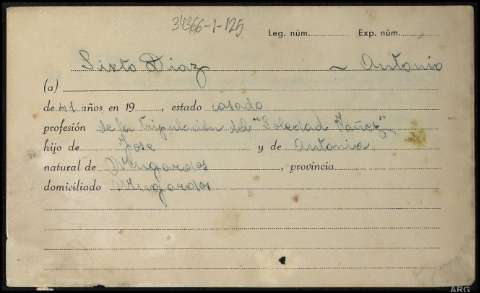 34366-1-125
Leg. núm. Exp. núm.
Sixto Diaz ~ Antonio
(a)
de 41 años en 19 , estado casado
profesión de la Tripulacion del "Soledad Yañez"
hijo de Jose y de Antonia
natural de Mugardos , provincia
domiciliado Mugardos
ARG